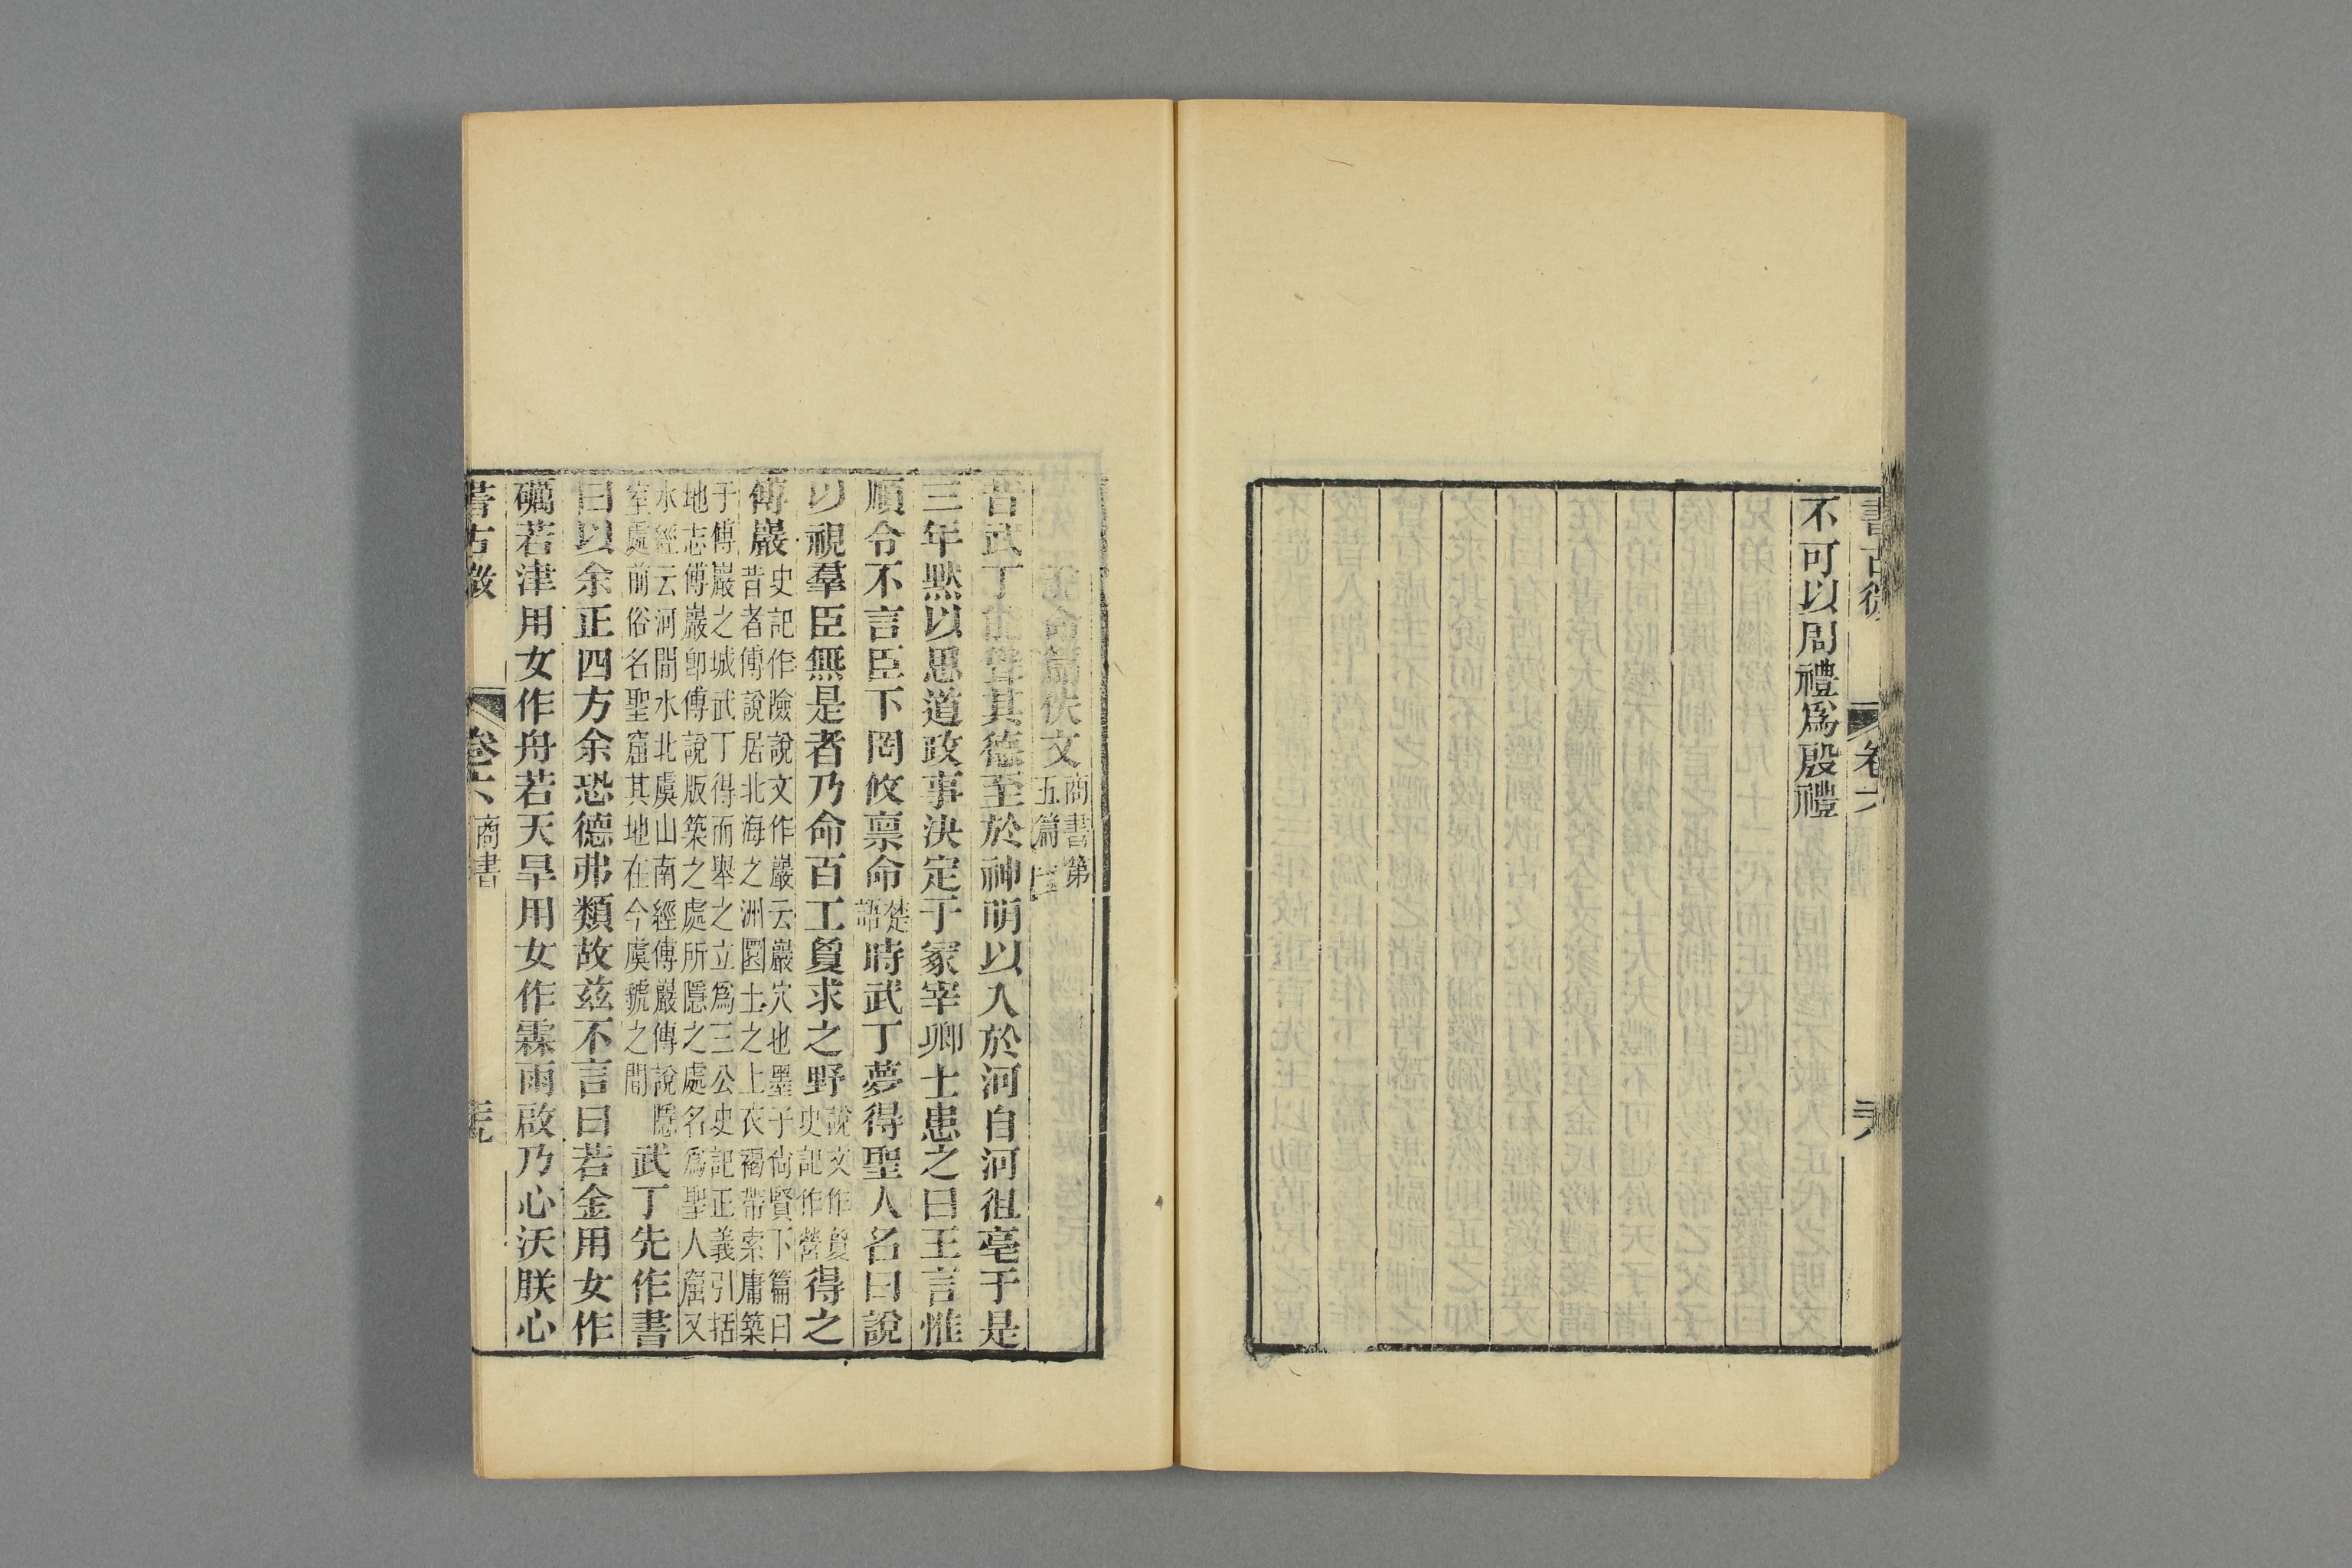 書古微
卷六
不可以周禮爲殷禮
說命篇佚文商書第五篇
昔武丁能聳其德至於神明以入於河自河徂亳于是
三年默以思道政事決定于冢宰卿士患之曰王言惟
順令不言臣下罔攸稟命楚語時武丁夢得聖人名曰說
以視羣臣無是者乃命百工敻求之野說文作敻史記作營得之
傅巖史記作險說文作巖云巖穴也墨子尙賢下篇曰昔者傅說居北海之洲圜土之上衣褐帶索庸築
于傅巖之城武丁得而舉之立爲三公史記正義引括地志傅巖卽傅說版築之處所隱之處名爲聖人窟又
水經云河間水北虞山南經傅巖傅說隱室處前俗名聖窟其地在今虞虢之間武丁先作書
曰以余正四方余恐德弗類故茲不言曰若金用女作
礪若津用女作舟若天旱用女作霖雨啟乃心沃朕心
書古微
卷六
商書